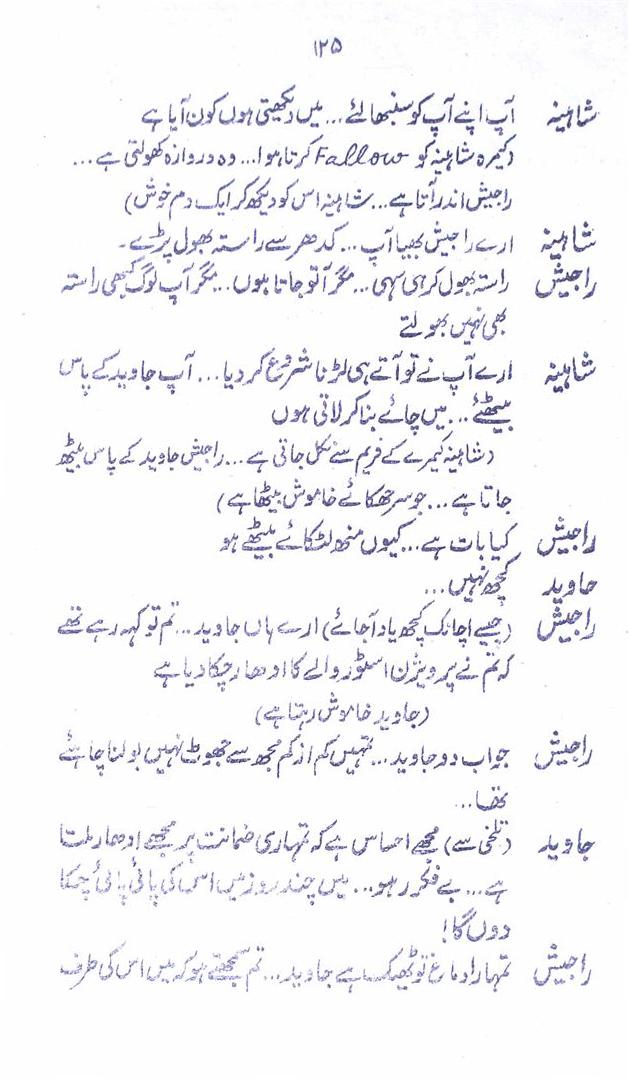 ۱۲۵
شاہینہ آپ اپنے آپ کو سنبھالئے... میں دیکھتی ہوں کون آیا ہے
(کیمرہ شاہینہ کو Fallow کرتا ہوا... وہ دروازہ کھولتی ہے...
راجیش اندر آتا ہے... شاہینہ اس کو دیکھ کر ایک دم خوش)
شاہینہ ارے راجیش بھیا آپ... کدھر سے راستہ بھول پڑے۔
راجیش راستہ بھول کر ہی سہی... مگر آ تو جاتا ہوں... مگر آپ لوگ کبھی راستہ
بھی نہیں بھولتے
شاہینہ ارے آپ نے تو آتے ہی لڑنا شروع کر دیا... آپ جاوید کے پاس
بیٹھئے... میں چائے بنا کر لاتی ہوں
(شاہینہ کیمرے کے فریم سے نکل جاتی ہے... راجیش جاوید کے پاس بیٹھ
جاتا ہے... جو سر جھکائے خاموش بیٹھا ہے)
راجیش کیا بات ہے... کیوں منھ لٹکائے بیٹھے ہو
جاوید کچھ نہیں...
راجیش (جیسے اچانک کچھ یاد آجائے) ارے ہاں جاوید... تم تو کہہ رہے تھے
کہ تم نے پرویژن اسٹور والے کا ادھار چکا دیا ہے
(جاوید خاموش رہتا ہے)
راجیش جواب دو جاوید... تمہیں کم از کم مجھ سے جھوٹ نہیں بولنا چاہئے
تھا...
جاوید (تلخی سے) مجھے احساس ہے کہ تمہاری ضمانت پر مجھے ادھار ملتا
ہے... بے فکر رہو... میں چند روز میں اس کی پائی پائی چکا
دوں گا!
راجیش تمہارا دماغ تو ٹھیک ہے جاوید... تم سمجھتے ہو کہ میں اس کی طرف